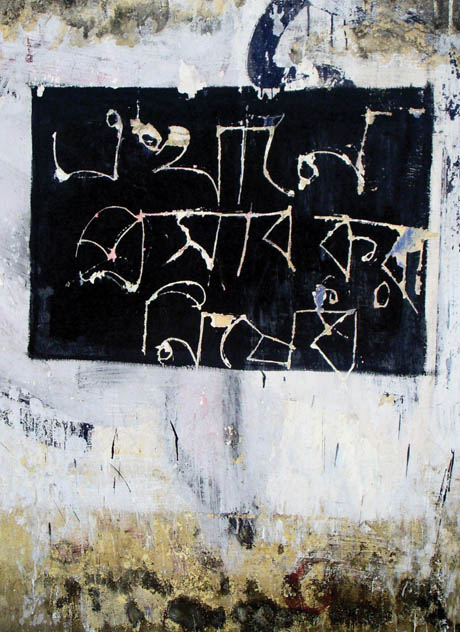 এখানে
প্রসাব করা
নিষেধ